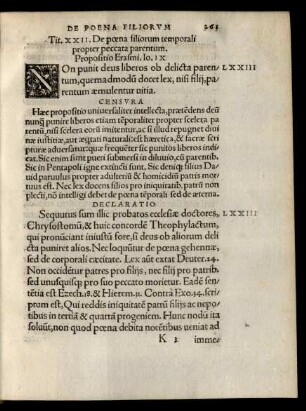 DE POENA FILIORVM 263
Tit. XXII. De pœna filiorum temporali
propter peccata parentum.
Propositio Erasmi. Io. IX
NOn punit deus liberos ob delicta paren LXXIII
tum, quemadmodũ docet lex, nisi filij, pa
rentum æmulentur uitia.
CENSVRA
Hæc propositio uniuersaliter intellecta, prætẽdens deũ
nunq̃ punire liberos etiam tẽporaliter propter scelera pa
rentũ, nisi scelera eorũ imitentur, ac si illud repugnet diui
næ iustitiæ, aut æquitati naturali: est hæretica, & sacræ scri
pturæ aduersatur: quæ frequẽter sic punitos liberos indi
cat. Sic enim sunt pueri submersi in diluuio, cũ parentib.
Sic in Pentapoli igne extincti sunt. Sic deniq; filius Da
uid paruulus propter adulteriũ & homicidiũ patris mor
tuus est. Nec lex docens filios pro iniquitatib. patrũ non
plecti, nõ intelligi debet de pœna tẽporali sed de æterna.
DECLARATIO
Sequutus sum illic probatos ecclesiæ doctores, LXXIII
Chrysostomũ, & huic concordẽ Theophylactum,
qui pronũciant iniustũ fore, si deus ob aliorum deli
cta puniret alios. Nec loquũtur de pœna gehennæ,
sed de corporali cæcitate. Lex aũt extat Deuter. 24.
Non occidẽtur patres pro filijs, nec filij pro patrib.
sed unusquisq; pro suo peccato morietur. Eadẽ sen-
tẽtia est Ezech. 18. & Hierem. 11. Contrà Exo. 24. scri-
ptum est, Qui reddis iniquitatẽ patrũ filijs ac nepo-
tibus in tertiã & quartã progeniem. Hunc nodũ ita
soluũt, non quod pœna debita nocẽtibus ueniat ad
K 3 imme-